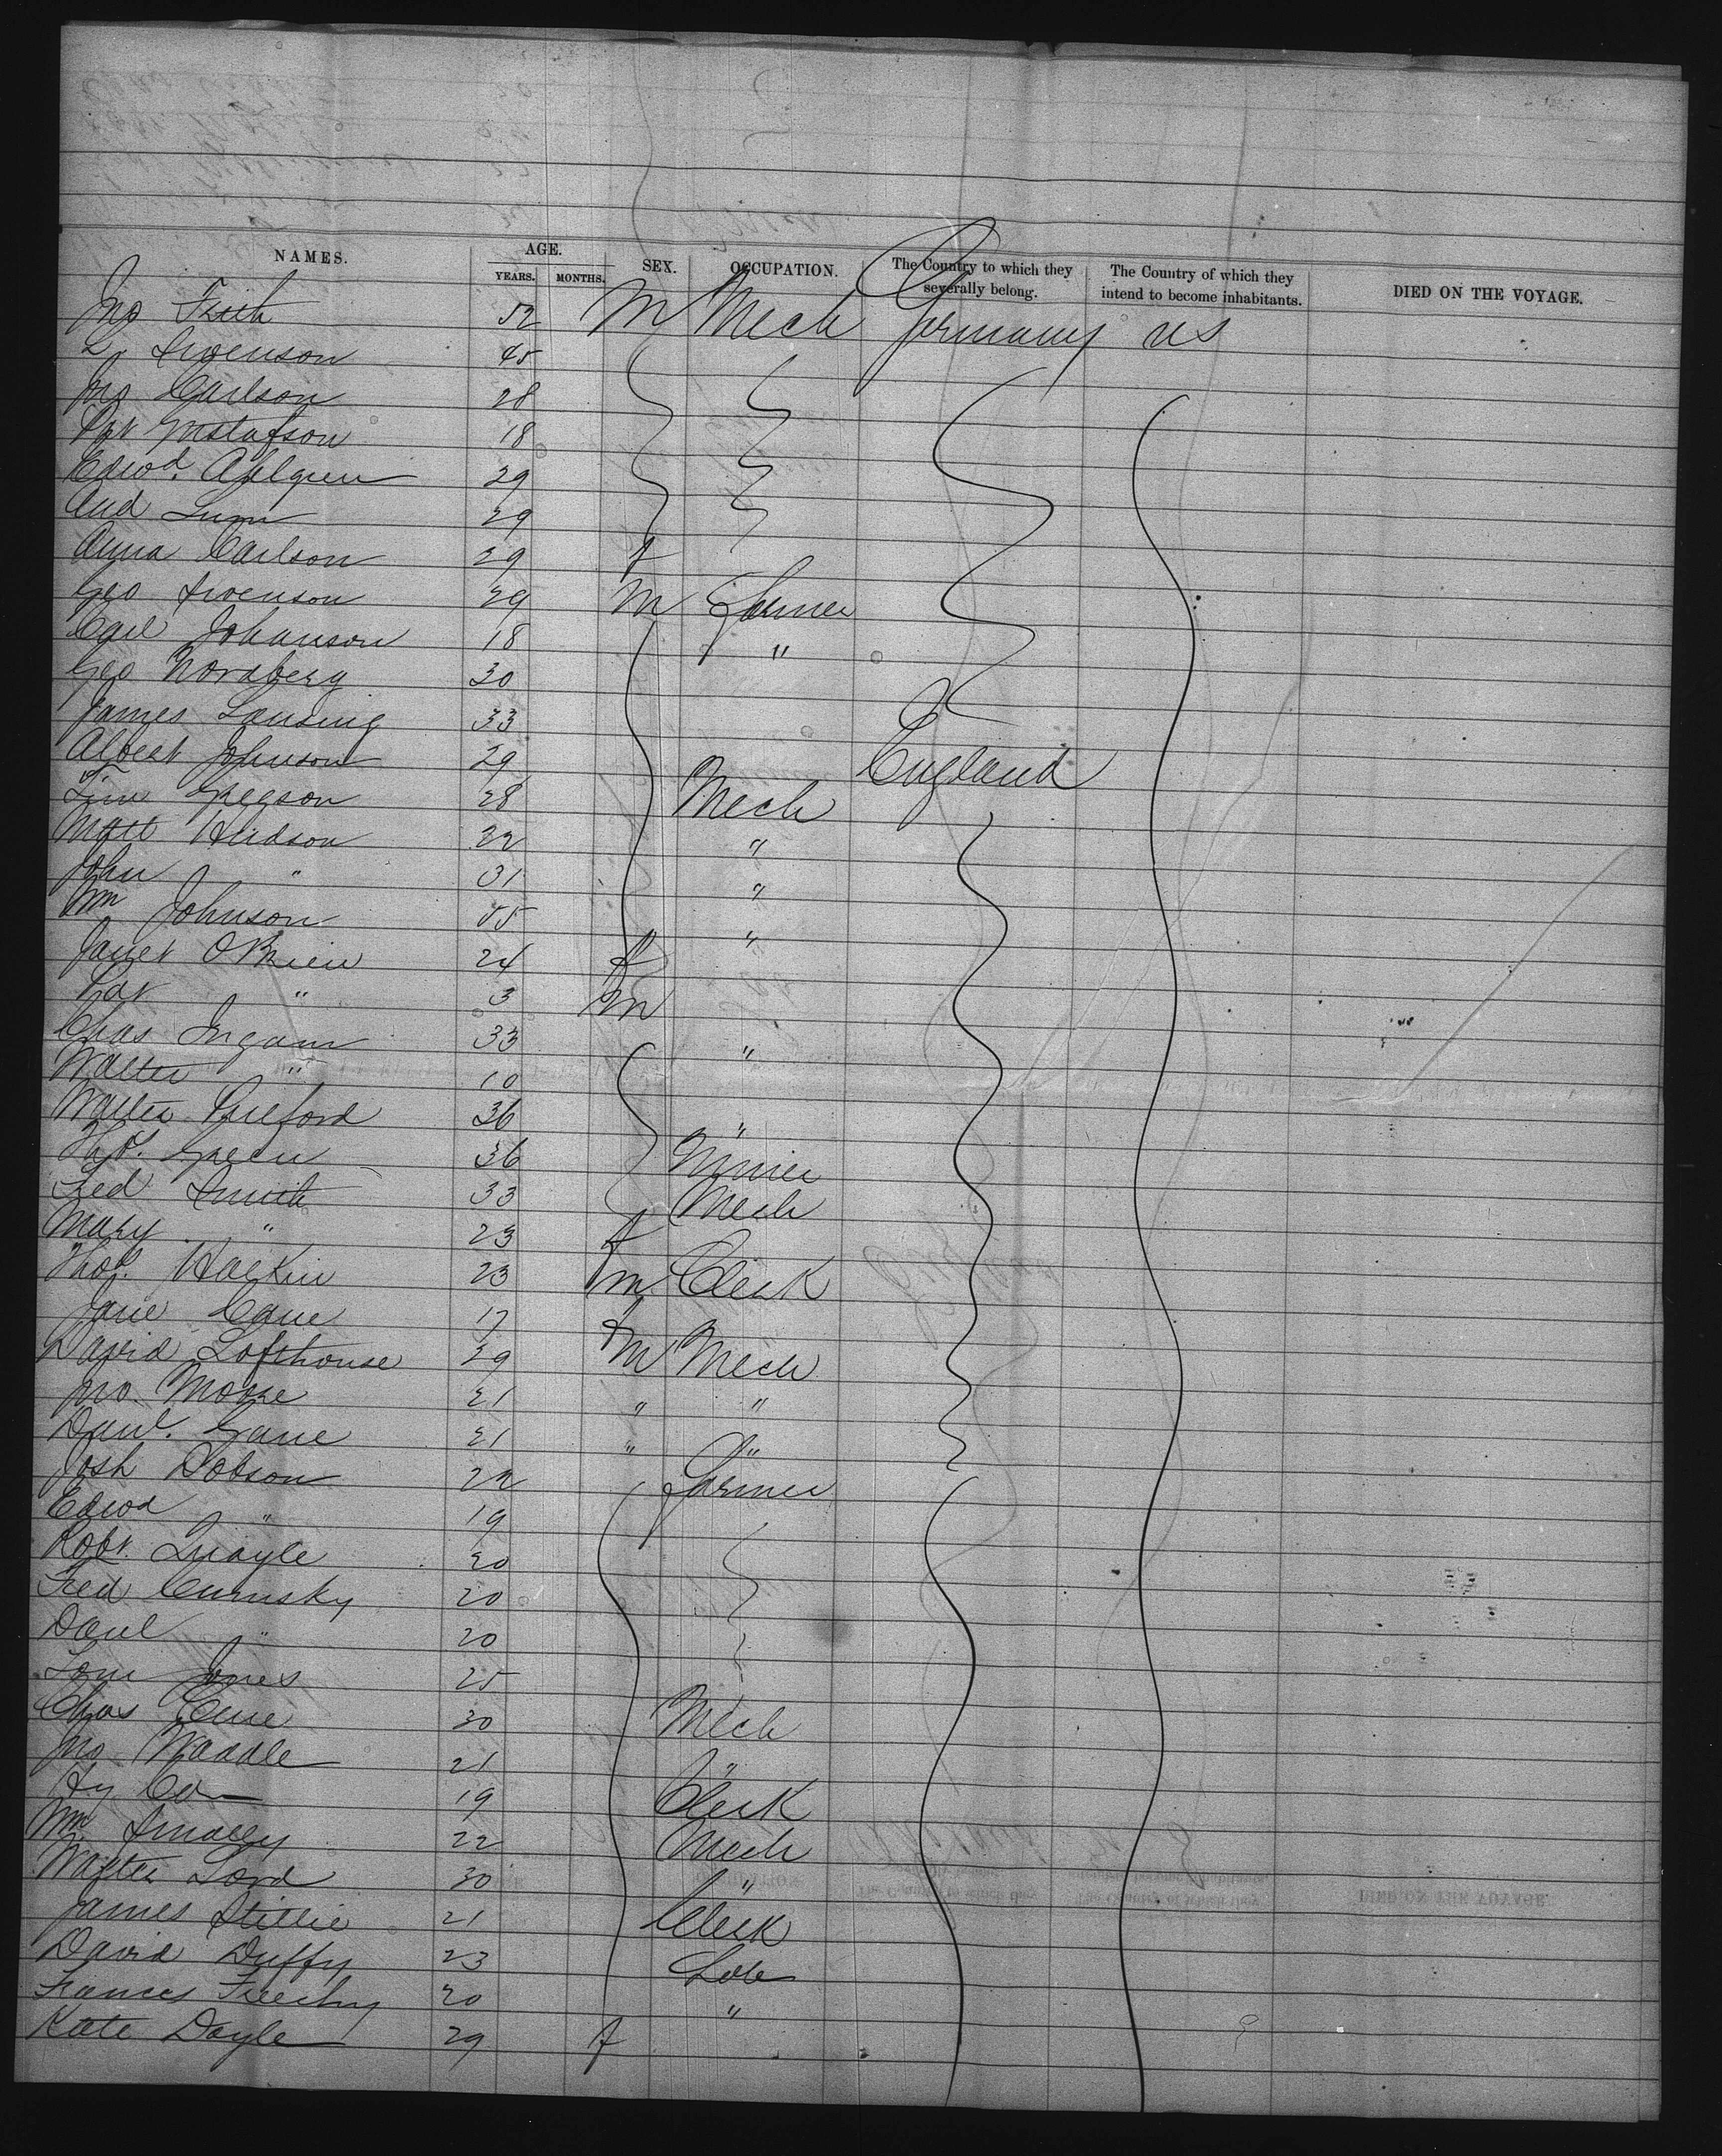 NAMES. AGE. SEX. OCCUPATION. The Country to which they severally belong. The Country of which they intend to become inhabitants. DIED ON THE VOYAGE.
YEARS. MONTHS.
Jno Frith 52 M Mech Germany US
L. Swenson 45
Jno Carlson 28
Gustafson 18
Edwd. Ahlgren 29
And 29
Anna Carlson 29 f
Geo Swenson 29 M Farmer
Carl Johanson 18 "
Geo Nordberg 30
James Lansing 33
Albert Johnson 29 England
Tim Gregson 28 Mech
Matt Hudson 32 "
John " 31 "
Wm Johnson 55 "
Janet OBrien 24 f
Pat " 3 M
Chas Ingam 33 "
Walter " 10
Walter Pulford 36 "
Thos. Green 36 Miner
Fred Smith 33 Mech
Mary " 23 f
Thos. Hackin 23 m Clerk
Jane Cane 17 f
David Lofthouse 29 M Mech
Jno. Moore 21 " "
Danl. Gane 21 " "
Josh Dobson 22 Farmer
Edwd " 19
Robt. Quayle 20
Fred Curnsky 20
Danl " 20
Tom Jones 25
Chas Cene 30 Mech
Jno Waddle 21 "
Hy Co 19 Clerk
Wm. Smalley 22 Mech
Walter Lord 30 "
James Stillie 21 Clerk
David Duffy 23 Lab
Frances Feechy 20 "
Kate Doyle 29 f